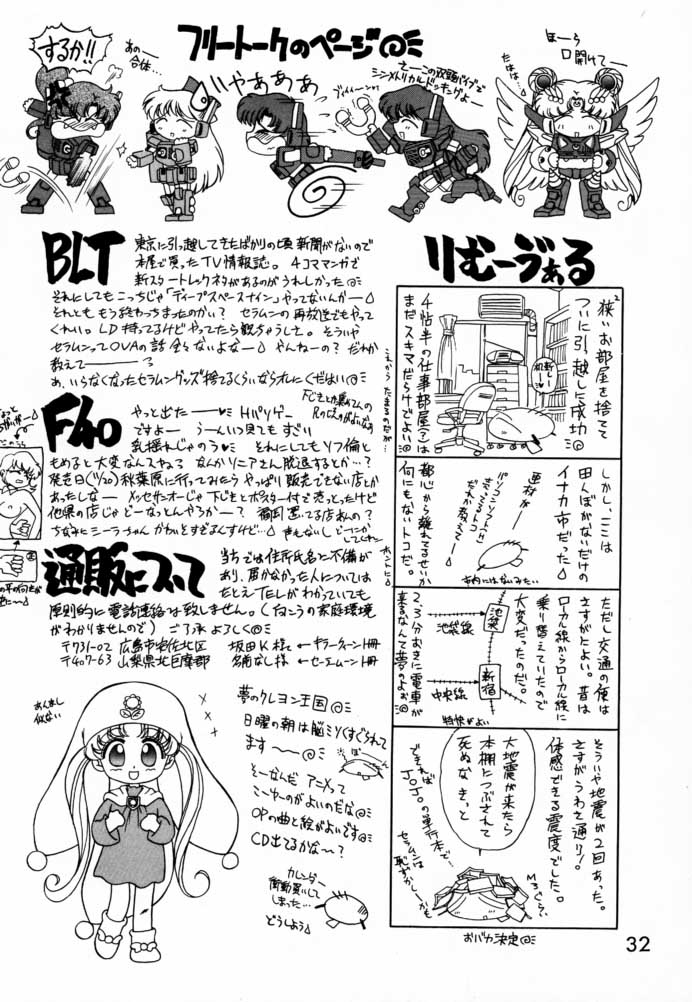 フリートークのページ@ミ
するか!!
あのー
合体…
いやあああ
ブィィィ〜ンッ
さーこの双頭バイブで
シンメトリカルドッキングよー
ほーら
口開けてー
たはは…
BLT
東京に引っ越してきたばかりの頃新聞がないので
本屋で買ったTV情報誌。4コママンガで
新スタートレックネタがあるのがうれしかった@ミ
それにしてもこっちじゃ「ディープスペースナイン」やってないんかー
それとももう終わっちまったのかい? セラムンの再放送でもやって
くれい。LD持ってるけどやってたら観ちゃうしさ。そういや
セラムンってOVAの話全々ないよなー やんねーの? だれか
教えてーーーろ
あ、いらなくなったセラムングッズ捨てるくらいならオレにくだはい@ミ
F40
やっと出たーー♡ミ Hパリゲー
ですよー うーんいつ見てもすごい
乳揺れじゃのう♡ミ それにしてもソフ倫と
もめると大変なんスやろ? なんかソニアさん脱退するとか…?
発売日(11/20)秋葉原に行ってみたらやっぱり販売できない店とか
あったしなー メッセサンオーじゃ下じきとかポスター付で売っとったけど
他県の店じゃどーなっとんやろうかー?
通販について
当方では住所氏名に不備が
あり、届かなかった人については
たとえTELがわかっていても
原則的に電話連絡は致しません。(向こうの家庭環境
がわかりませんので) ご了承よろしく@ミ
〒731-02 広島市安佐北区 坂田K様 ← キラークィーン1冊
〒407-63 山梨県北巨摩郡 名前なし様 ← セーエムーン1冊
あんまし
似ない
夢のクレヨン王国@ミ
日曜の朝は脳ミソくすぐられて
ます〜〜@ミ
そーなんだ アニメって
こーゆーのがよいのだな@ミ
OPの曲と絵がよいです@ミ
CD出てるかな〜?
カレンダー
衝動買いして
しまった…
どうしよう
りむーヴぁる
狭いお部屋を捨てて
ついに引っ越しに成功@ミ
新しい
机
4帖半の仕事部屋(?)は
まだスキマだらけでよい@ミ
しかし、ここは
田んぼがないだけの
イナカ市だった
亜村が
パソコンソフトは
どこで売ってるトコ
だれか教えてー
市内にはないみたい
都心から離れてるせいか
何にもないトコだ。
ただし交通の便は
さすがによい。昔は
ローカル線からローカル線に
乗り替えていたので
大変だったのだ。
池袋
池袋線
新宿
中央線
特快がよい
2、3分おきに電車が
来るなんて夢のよお@ミ
そういや地震が2回あった。
さすがうわさ通り!
体感できる震度でした。
大地震が来たら
本棚につぶされて
死ぬなきっと
できれば
JoJoの単行本で…
セラムンは
恥ずかしーかも
おバカ決定@ミ
32